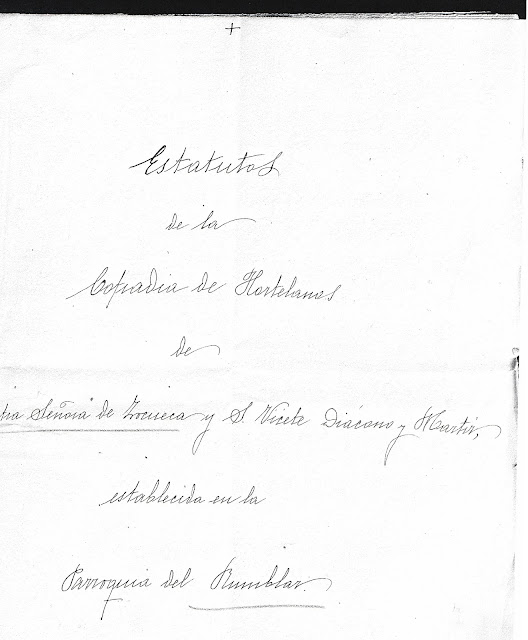 +
Estatutos
de la
Cofradia de Hortelanos
de
tra Señora de Zocueca y S. Vicete Diácono y Martir,
establecida en la
Parroquia del Rumblar.